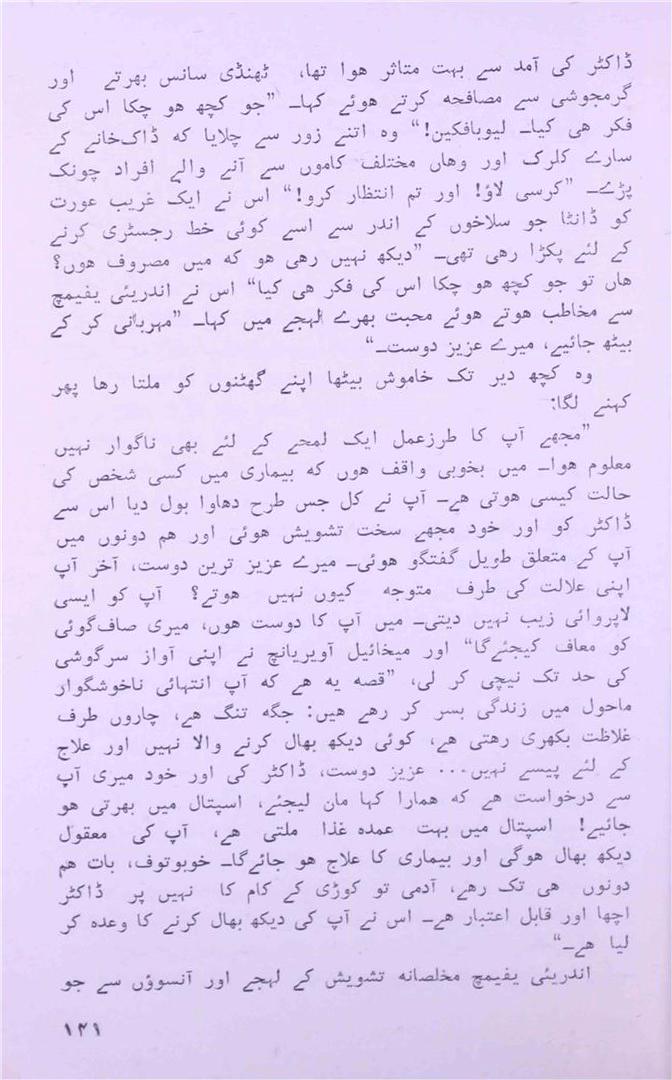 ڈاکٹر کی آمد سے بہت متاثر ہوا تھا، ٹھنڈی سانس بھرتے اور
گرمجوشی سے مصافحہ کرتے ہوئے کہا۔ ”جو کچھ ہو چکا اس کی
فکر ہی کیا۔ لیوبافکین!“ وہ اتنے زور سے چلایا کہ ڈاک‌خانے کے
سارے کلرک اور وہاں مختلف کاموں سے آنے والے افراد چونک
پڑے۔ ”کرسی لاؤ! اور تم انتظار کرو!“ اس نے ایک غریب عورت
کو ڈانٹا جو سلاخوں کے اندر سے اسے کوئی خط رجسٹری کرنے
کے لئے پکڑا رہی تھی۔ ”دیکھ نہیں رہی ہو کہ میں مصروف ہوں؟
ہاں تو جو کچھ ہو چکا اس کی فکر ہی کیا“ اس نے اندریئی یفیمچ
سے مخاطب ہوتے ہوئے محبت بھرے لہجے میں کہا۔ ”مہربانی کر کے
بیٹھ جائیے، میرے عزیز دوست۔“
وہ کچھ دیر تک خاموش بیٹھا اپنے گھٹنوں کو ملتا رہا پھر
کہنے لگا:
”مجھے آپ کا طرزعمل ایک لمحے کے لئے بھی ناگوار نہیں
معلوم ہوا۔ میں بخوبی واقف ہوں کہ بیماری میں کسی شخص کی
حالت کیسی ہوتی ہے۔ آپ نے کل جس طرح دھاوا بول دیا اس سے
ڈاکٹر کو اور خود مجھے سخت تشویش ہوئی اور ہم دونوں میں
آپ کے متعلق طویل گفتگو ہوئی۔ میرے عزیز ترین دوست، آخر آپ
اپنی علالت کی طرف متوجہ کیوں نہیں ہوتے؟ آپ کو ایسی
لاپروائی زیب نہیں دیتی۔ میں آپ کا دوست ہوں، میری صاف‌گوئی
کو معاف کیجئےگا“ اور میخائیل آویریانچ نے اپنی آواز سرگوشی
کی حد تک نیچی کر لی، ”قصہ یہ ہے کہ آپ انتہائی ناخوشگوار
ماحول میں زندگی بسر کر رہے ہیں: جگہ تنگ ہے، چاروں طرف
غلاظت بکھری رہتی ہے، کوئی دیکھ بھال کرنے والا نہیں اور علاج
کے لئے پیسے نہیں... عزیز دوست، ڈاکٹر کی اور خود میری آپ
سے درخواست ہے کہ ہمارا کہا مان لیجئے، اسپتال میں بھرتی ہو
جائیے! اسپتال میں بہت عمدہ غذا ملتی ہے، آپ کی معقول
دیکھ بھال ہوگی اور بیماری کا علاج ہو جائےگا۔ خوبوتوف، بات ہم
دونوں ہی تک رہے، آدمی تو کوڑی کے کام کا نہیں پر ڈاکٹر
اچھا اور قابل اعتبار ہے۔ اس نے آپ کی دیکھ بھال کرنے کا وعدہ کر
لیا ہے۔“
اندریئی یفیمچ مخلصانہ تشویش کے لہجے اور آنسوؤں سے جو
۱۲۱